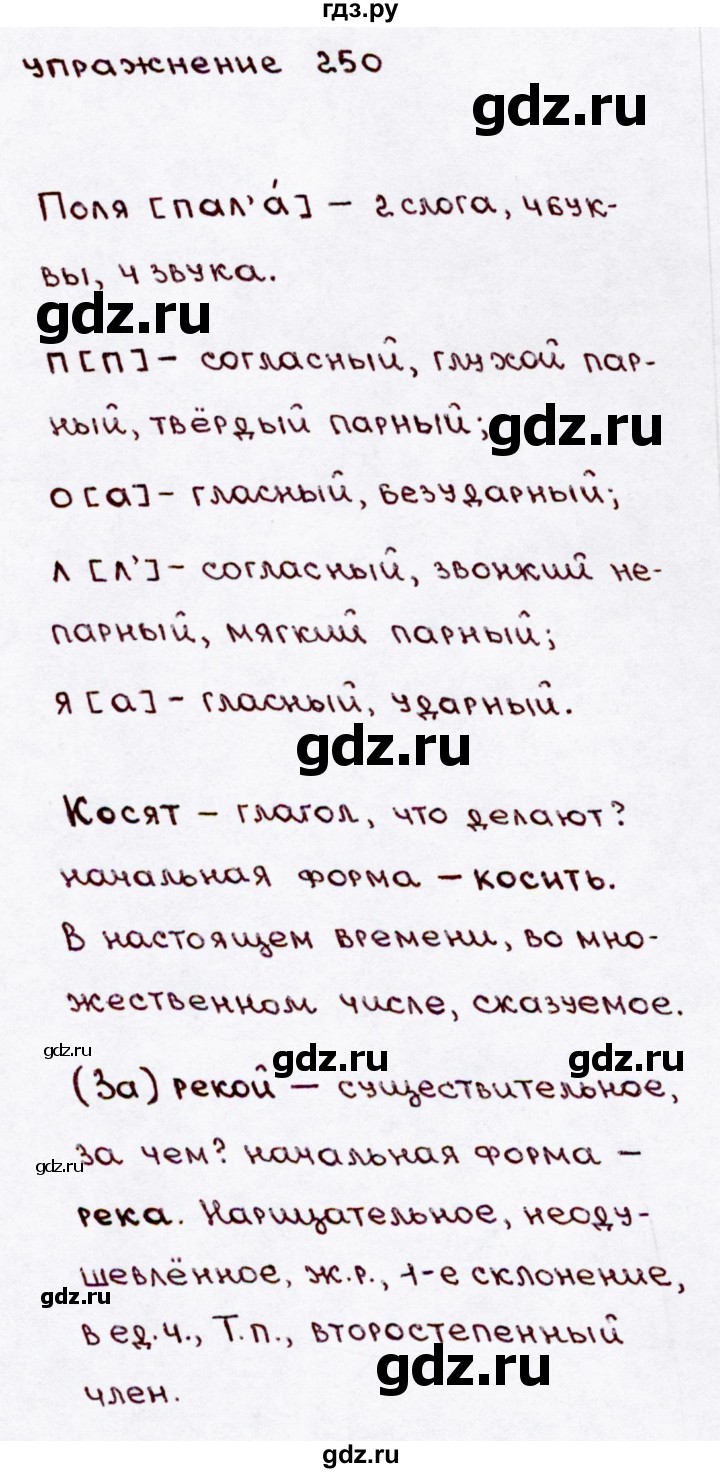 гдз.ру
упражнение 250
gdz.ru
Поля [пал’á] – 2 слога, 4 бук-
вы, 4 звука.
gdz.ru
п [п] – согласный, глухой пар-
ный, твёрдый парный;
gdz.ru
о [а] – гласный, безударный;
л [л’] – согласный, звонкий не-
парный, мягкий парный;
я [а] – гласный, ударный.
gdz.ru
Косят – глагол, что делают?
начальная форма – косить.
В настоящем времени, во мно-
жественном числе, сказуемое.
gdz.ru gdz.ru gdz.ru
(За) рекой – существительное,
за чем? начальная форма –
gdz.ru
река. Нарицательное, неоду-
шевлённое, ж.р., 1-е склонение,
gdz.ru
в ед.ч., Т.п., второстепенный
gdz.ru
член.
gdz.ru